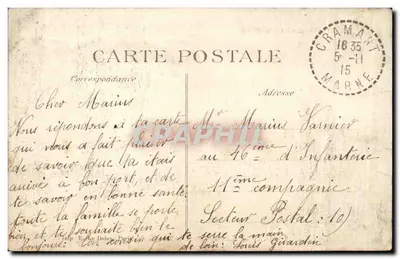 CARTE POSTALE
Correspondance
Adresse
CRAMANT
16 35
5-11
15
MARNE
Cher Marius
Nous répondons à ta carte
qui nous a fait plaisir
de savoir que tu étais
arrivé à bon port, et de
te savoir en bonne santé
toute la famille se porte
bien, et te souhaite bien le
bonjour. Ton cousin qui te serre la main
de loin: Louis Girardin
Mr Marius Varnier
au 46ème d'Infanterie
11ème compagnie
Secteur Postal: 10